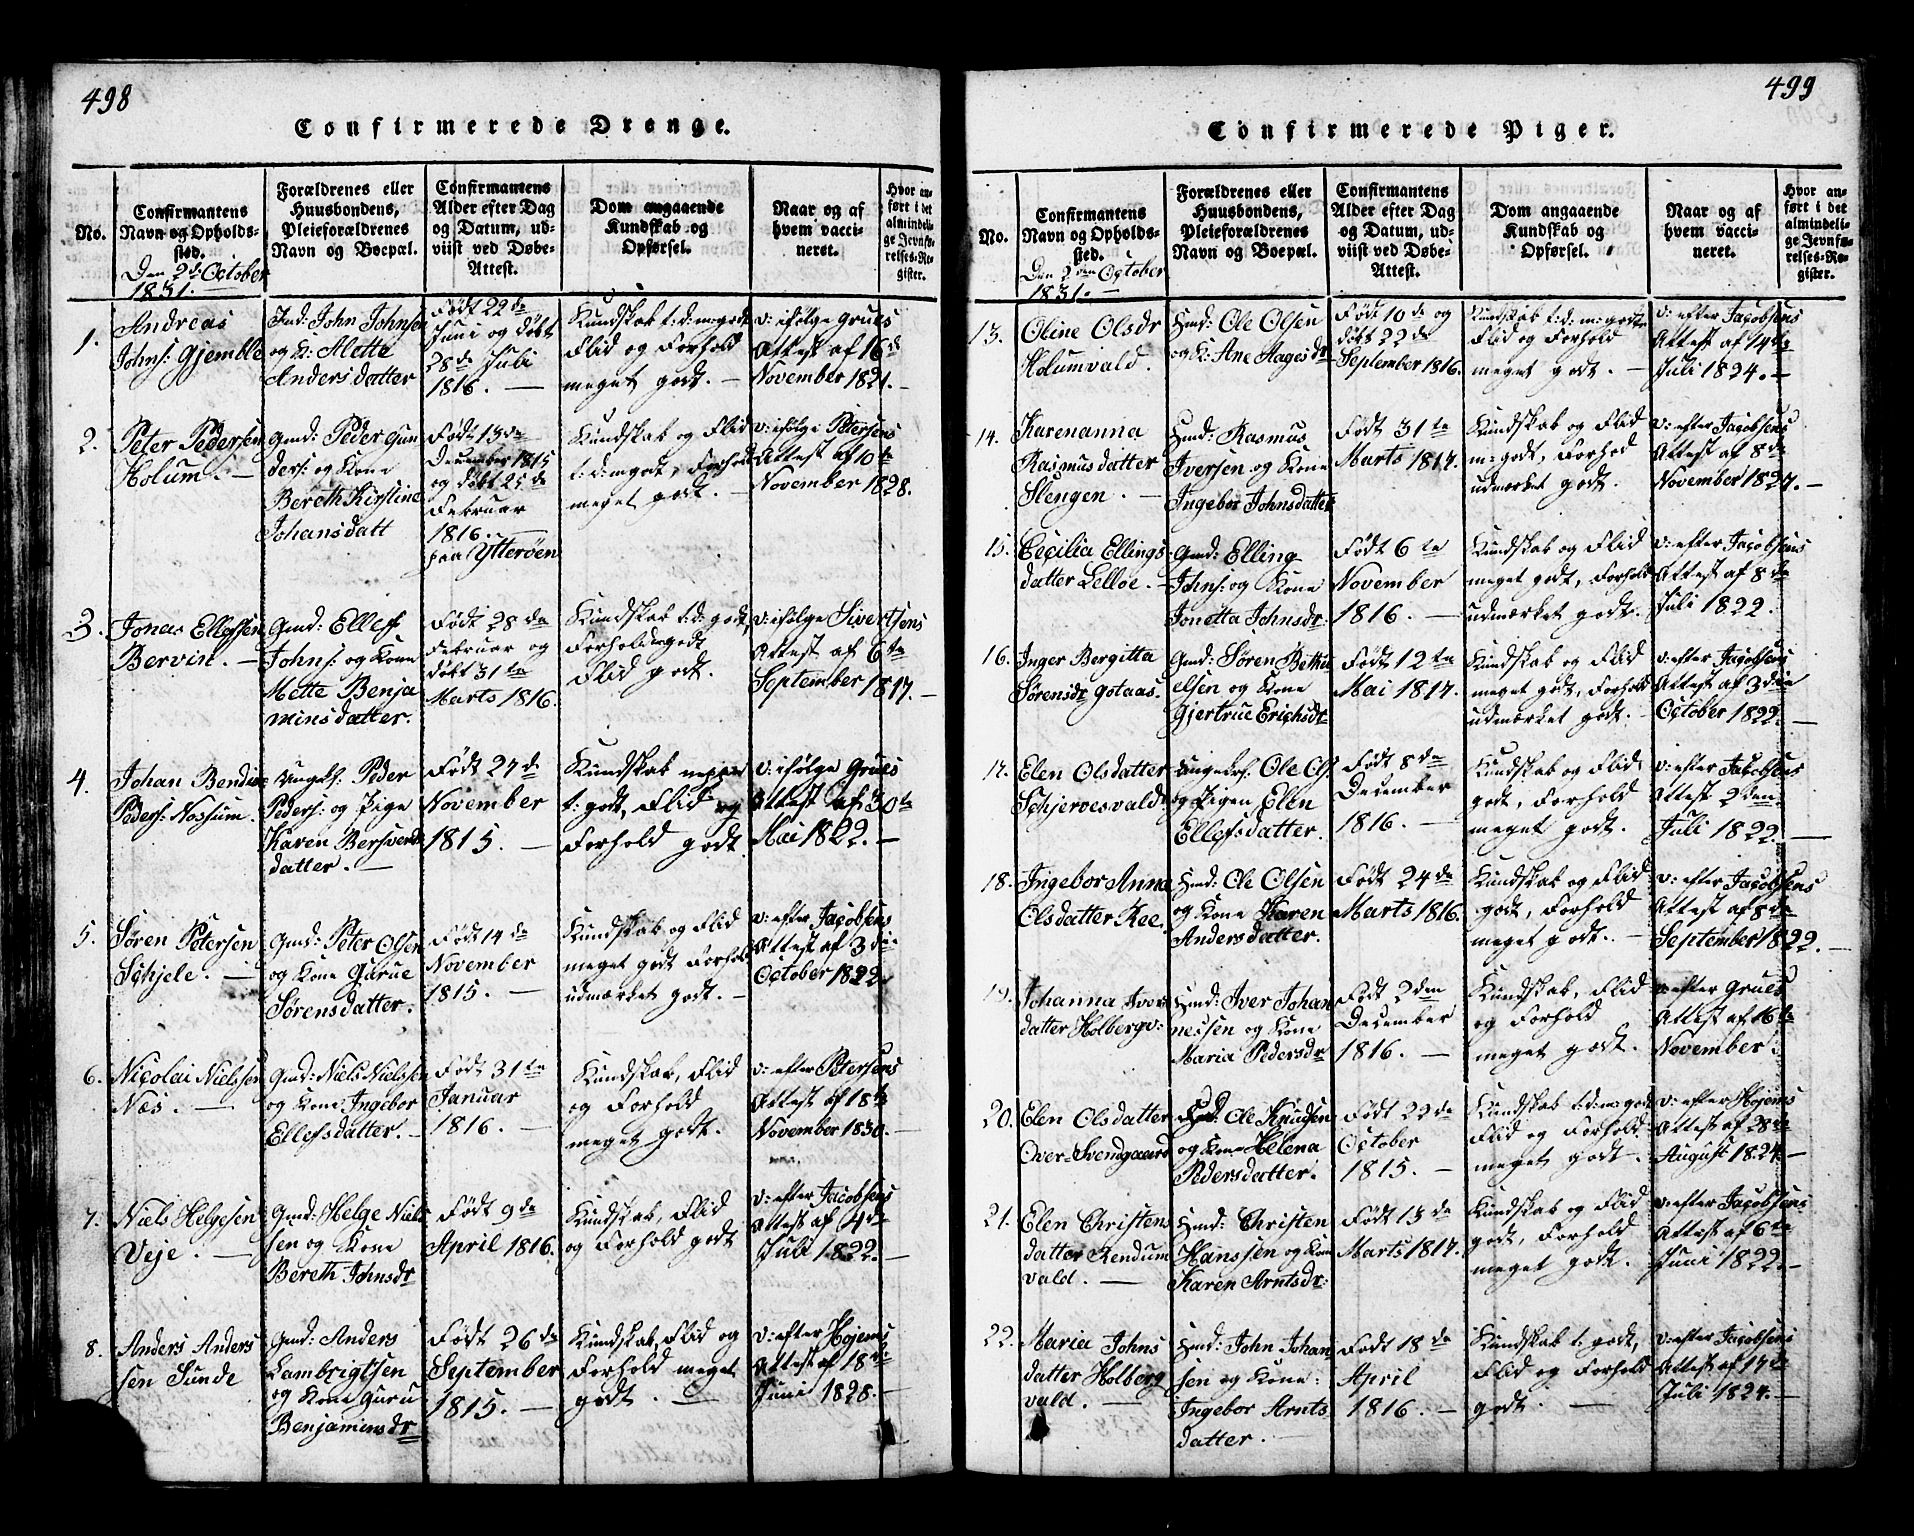 498
Confirmerede Drenge.
No.
Confirmantens
Navn og Opholds-
sted.
Forældrenes eller
Huusbondens,
Pleieforældrenes
Navn og Boepæl.
Confirmantens
Alder efter Dag
og Datum, ud-
viist ved Døbe-
Attest.
Dom angaaende
Kundskab og
Opførsel.
Naar og af
hvem vacci-
neret.
Hvor an-
ført i det
almindeli-
ge Jevnfø-
relses-Re-
gister.
Den 2de October
1831.
1.
Andreas
Johns: Gjemble
Ind: John Johnsen
og K: Aletta
Andersdatter
Født 22de
Juni og døbt
28de Juli
1816. —
Kundskab t:d:m:godt
Flid og Forhold
meget godt. —
v: ifølge Grues
Attest af 16de
November 1821. —
2.
Peter Pedersen
Holum. —
Gmd: Peder Gun
ders: og Kone
Bereth Kirstine
Johansdatt
Født 13de
December 1815
og døbt 25de
Februar
1816. —
paa Ytterøen
Kundskab og Flid
t:d:m:godt, Forhold
meget godt. —
v: ifølge Petersens
Attest af 10te
November 1828.
3.
Jonas Ellefsen
Bervin. —
Gmd: Ellef
Johns: og Kone
Mette Benja
minsdatter.
Født 28de
Februar og
døbt 31te
Marts 1816.
Kundskab t:d: godt,
Forhold m:godt
Flid godt.
v: ifølge Sivertsens
Attest af 6te
September 1817. —
4.
Johan Bendix
Peders: Nossum.
Ungk: Peder
Peders: og Pige
Karen Bersvends
datter. —
Født 27de
November
1815. —
Kundskab neppe
t: godt, Flid og
Forhold godt.
v: ifølge Grues
Attest af 30te
Mai 1822. —
5.
Sören Petersen
Schjele. —
Gmd: Peter Olsen
og Kone Gurue
Sörensdatter.
Født 14de
November
1815. —
Kundskab og Flid
meget godt Forhold
udmærket godt. —
v: efter Jacobsens
Attest af 3die
October 1822
6.
Nicolai Nielssen
Næs. —
Gmd: Niels Nielssen
og Kone Ingebor
Ellefsdatter. —
Født 31te
Januar
1816. —
Kundskab, Flid
og Forhold
meget godt.
v: efter Petersens
Attest af 18de
November 1830. —
7.
Niels Helgesen
Veje. —
Gmd: Helge Niels
sen og Kone
Bereth Johnsdr
Født 9de
April 1816.
Kundskab, Flid
og Forhold godt
v: efter Jacobsens
Attest af 4de
Juli 1822. —
8.
Anders Anders
sen Sunde
Gmd: Anders
Lambrigtsen
og Kone Guru
Benjaminsdr
Født 26de
September
1815. —
Kundskab, Flid og
Forhold meget
godt. —
v: efter Højems
Attest af 18de
Juni 1828. —
499
Confirmerede Piger.
No.
Confirmantens
Navn og Opholds-
sted.
Forældrenes eller
Huusbondens,
Pleieforældrenes
Navn og Boepæl.
Confirmantens
Alder efter Dag
og Datum, ud-
viist ved Døbe-
Attest.
Dom angaaende
Kundskab og
Opførsel.
Naar og af
hvem vacci-
neret.
Hvor an-
ført i det
almindeli-
ge Jevnfø-
relses-Re-
gister.
Den 2den October
1831. —
13.
Oline Olsdr
Holumvald.
Hmd: Ole Olsen
og K: Ane Aagesdr
Født 10de og
døbt 22de
September 1816.
Kundskab t:d:m:godt
Flid og Forhold
meget godt. —
v: efter Jacobsens
Attest af 14de
Juli 1824. —
14.
Karenanna
Rasmusdatter
Slengen. —
Hmd: Rasmus
Iversen og Kone
Ingebor Johnsdatter
Født 31te
Marts 1817.
Kundskab og Flid
m: godt, Forhold
udmærket godt.
v: efter Jacobsens
Attest af 8de
November 1827. —
15.
Cecilia Ellings
datter Lelloe. —
Gmd: Elling
Johns: og Kone
Jonetta Johnsdr:
Født 6te
November
1816. —
Kundskab og Flid
meget godt, Forhold
udmærket godt.
v: efter Jacobsens
Attest af 8de
Juli 1822.
16.
Inger Bergitta
Sörensdr Gotaas.
Gmd: Sören Bethu
elsen og Kone
Gjertrue Erichsdr
Født 12te
Mai 1817.
Kundskab og Flid
meget godt, Forhold
udmærket godt. —
v: efter Jacobsens
Attest af 3die
October 1822. —
17.
Elen Olsdatter
Schjeroesvald
Ungekrl. Ole Ols
og Pigen Elen
Ellefsdatter.
Født 8de
December
1816. —
Kundskab og Flid
godt, Forhold
meget godt.
v: efter Jacobsens
Attest 2den
Juli 1822. —
18.
Ingebor Anna
Olsdatter Ree.
Hmd: Ole Olsen
og Kone Karen
Andersdatter.
Født 24de
Marts 1816.
Kundskab og Flid
godt, Forhold
meget godt. —
v: efter Jacobsens
Attest af 8de
September 1822. —
19.
Johanna Ivers
datter Holbergv:
Hmd: Iver Johan
nessen og Kone
Maria Pedersdr
Født 2den
December
1816. —
Kundskab, Flid
og Forhold
meget godt.
v: efter Grues
Attest af 16de
November
20.
Elen Olsdatter
Over-Svendgaard
Hmd: Ole Knudsen
og Kone Helena
Pedersdatter.
Født 22de
October
1815. —
Kundskab t:d:m:godt
Flid og Forhold
meget godt.
v: efter Højems
Attest af 28de
August 1824. —
21.
Elen Christens
datter Rendum
vald. —
Hmd: Christen
Hanssen og Kone
Karen Arntsdr:
Født 13de
Marts 1817.
Kundskab og Flid
godt, Forhold
meget godt.
v: efter Jacobsens
Attest af 6te
Juni 1822. —
22.
Maria Johns
datter Holberg
vald. —
Hmd: John Johan
sen og Kone:
Ingebor Arnts
datter. —
Født 18de
April
1816. —
Kundskab t: godt,
Flid og Forhold
godt. —
v: efter Jacobsens
Attest af 17de
Juli 1824. —